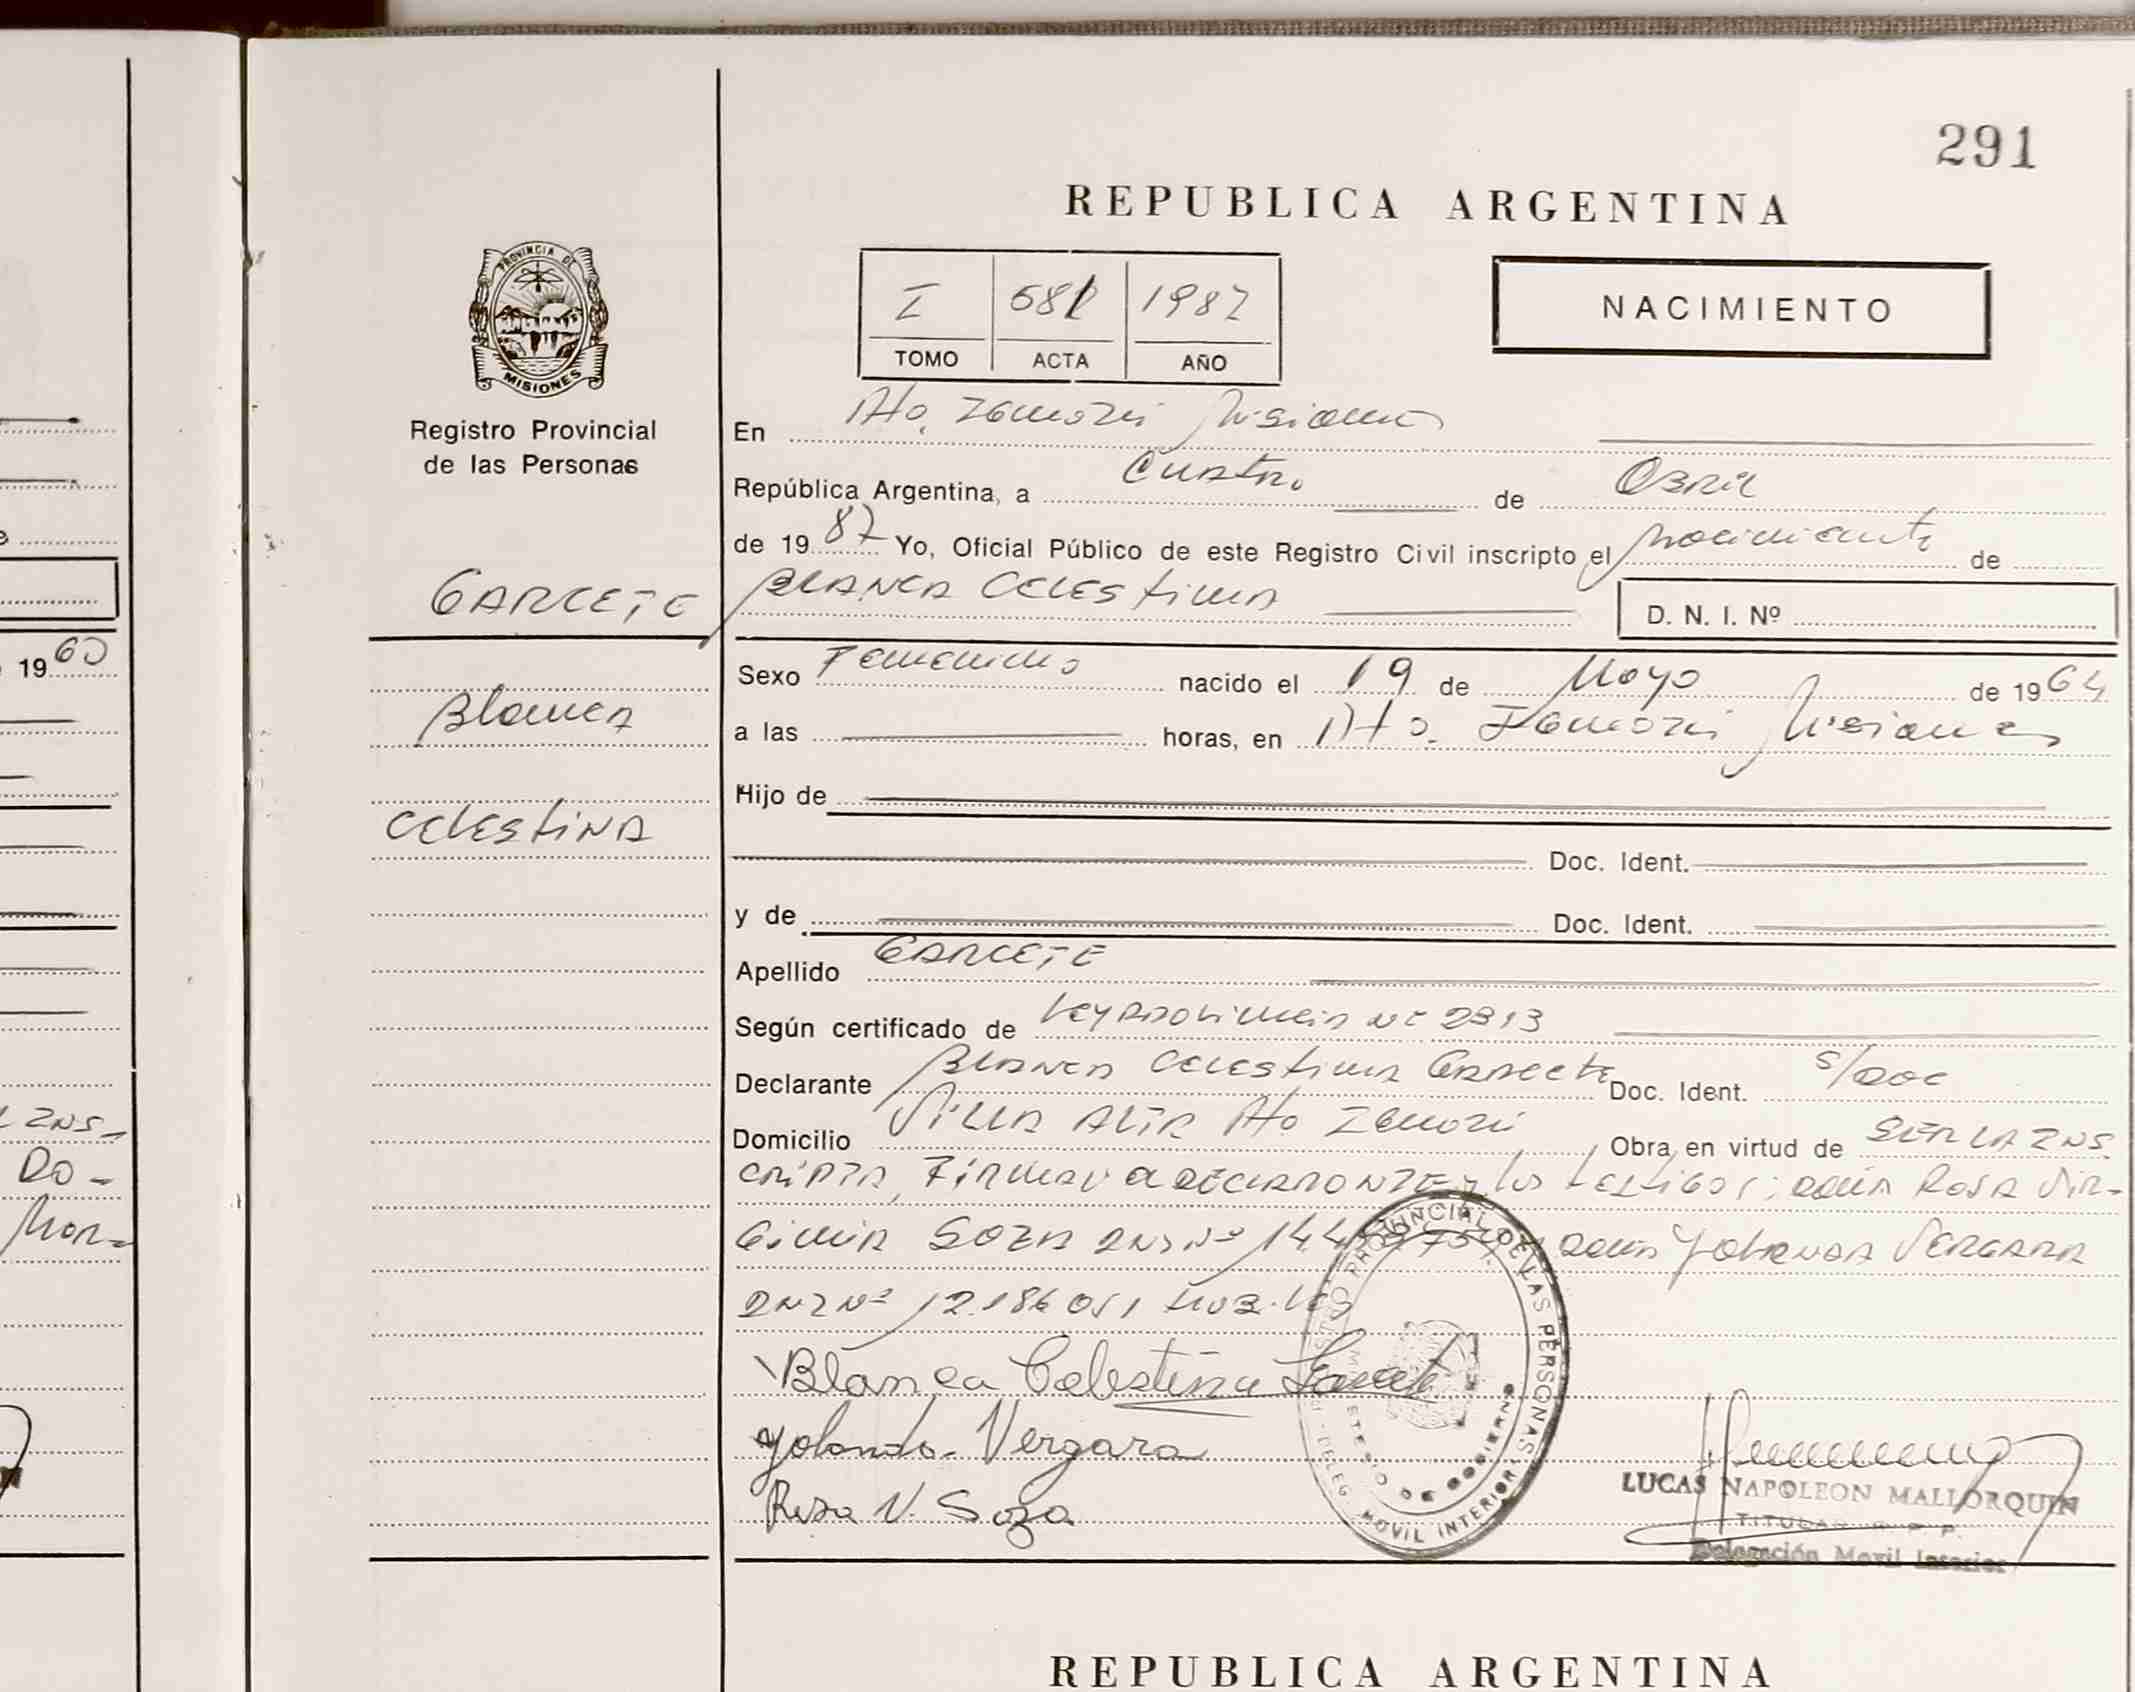 291
REPUBLICA ARGENTINA
PROVINCIA DE
MISIONES
Registro Provincial
de las Personas
I 1987
TOMO ACTA AÑO
NACIMIENTO
En Pto. Misiones
República Argentina, a Cuatro de Abril
de 1987 Yo, Oficial Público de este Registro Civil inscripto el Nacimiento de
GARCETE
BLANCA CELESTINA
D. N. I. Nº
Blanca
CELESTINA
Sexo Femenino nacido el 19 de Mayo de 1964
a las horas, en Pto. Misiones
Hijo de
Doc. Ident.
y de Doc. Ident.
Apellido GARCETE
Según certificado de Nº
Declarante BLANCA CELESTINA GARCETE Doc. Ident. S/DOC
Domicilio VILLA ALTA Pto Obra en virtud de SER LA INS
CRIPTA, FIRMAN LA DECLARANTE y los testigos: DOÑA ROSA VIR-
GINIA SOZA DNI Nº DOÑA YOLANDA VERGARA
DNI Nº 12.186.051
Blanca Celestina
Yolanda Vergara
Rosa V. Soza
PROVINCIAL DE LAS PERSONAS
DELEG. MOVIL INTERIOR
DE GOBIERNO
LUCAS NAPOLEON MALLORQUIN
TITULAR
Delegación Movil Interior
1960
INS-
DO-
REPUBLICA ARGENTINA